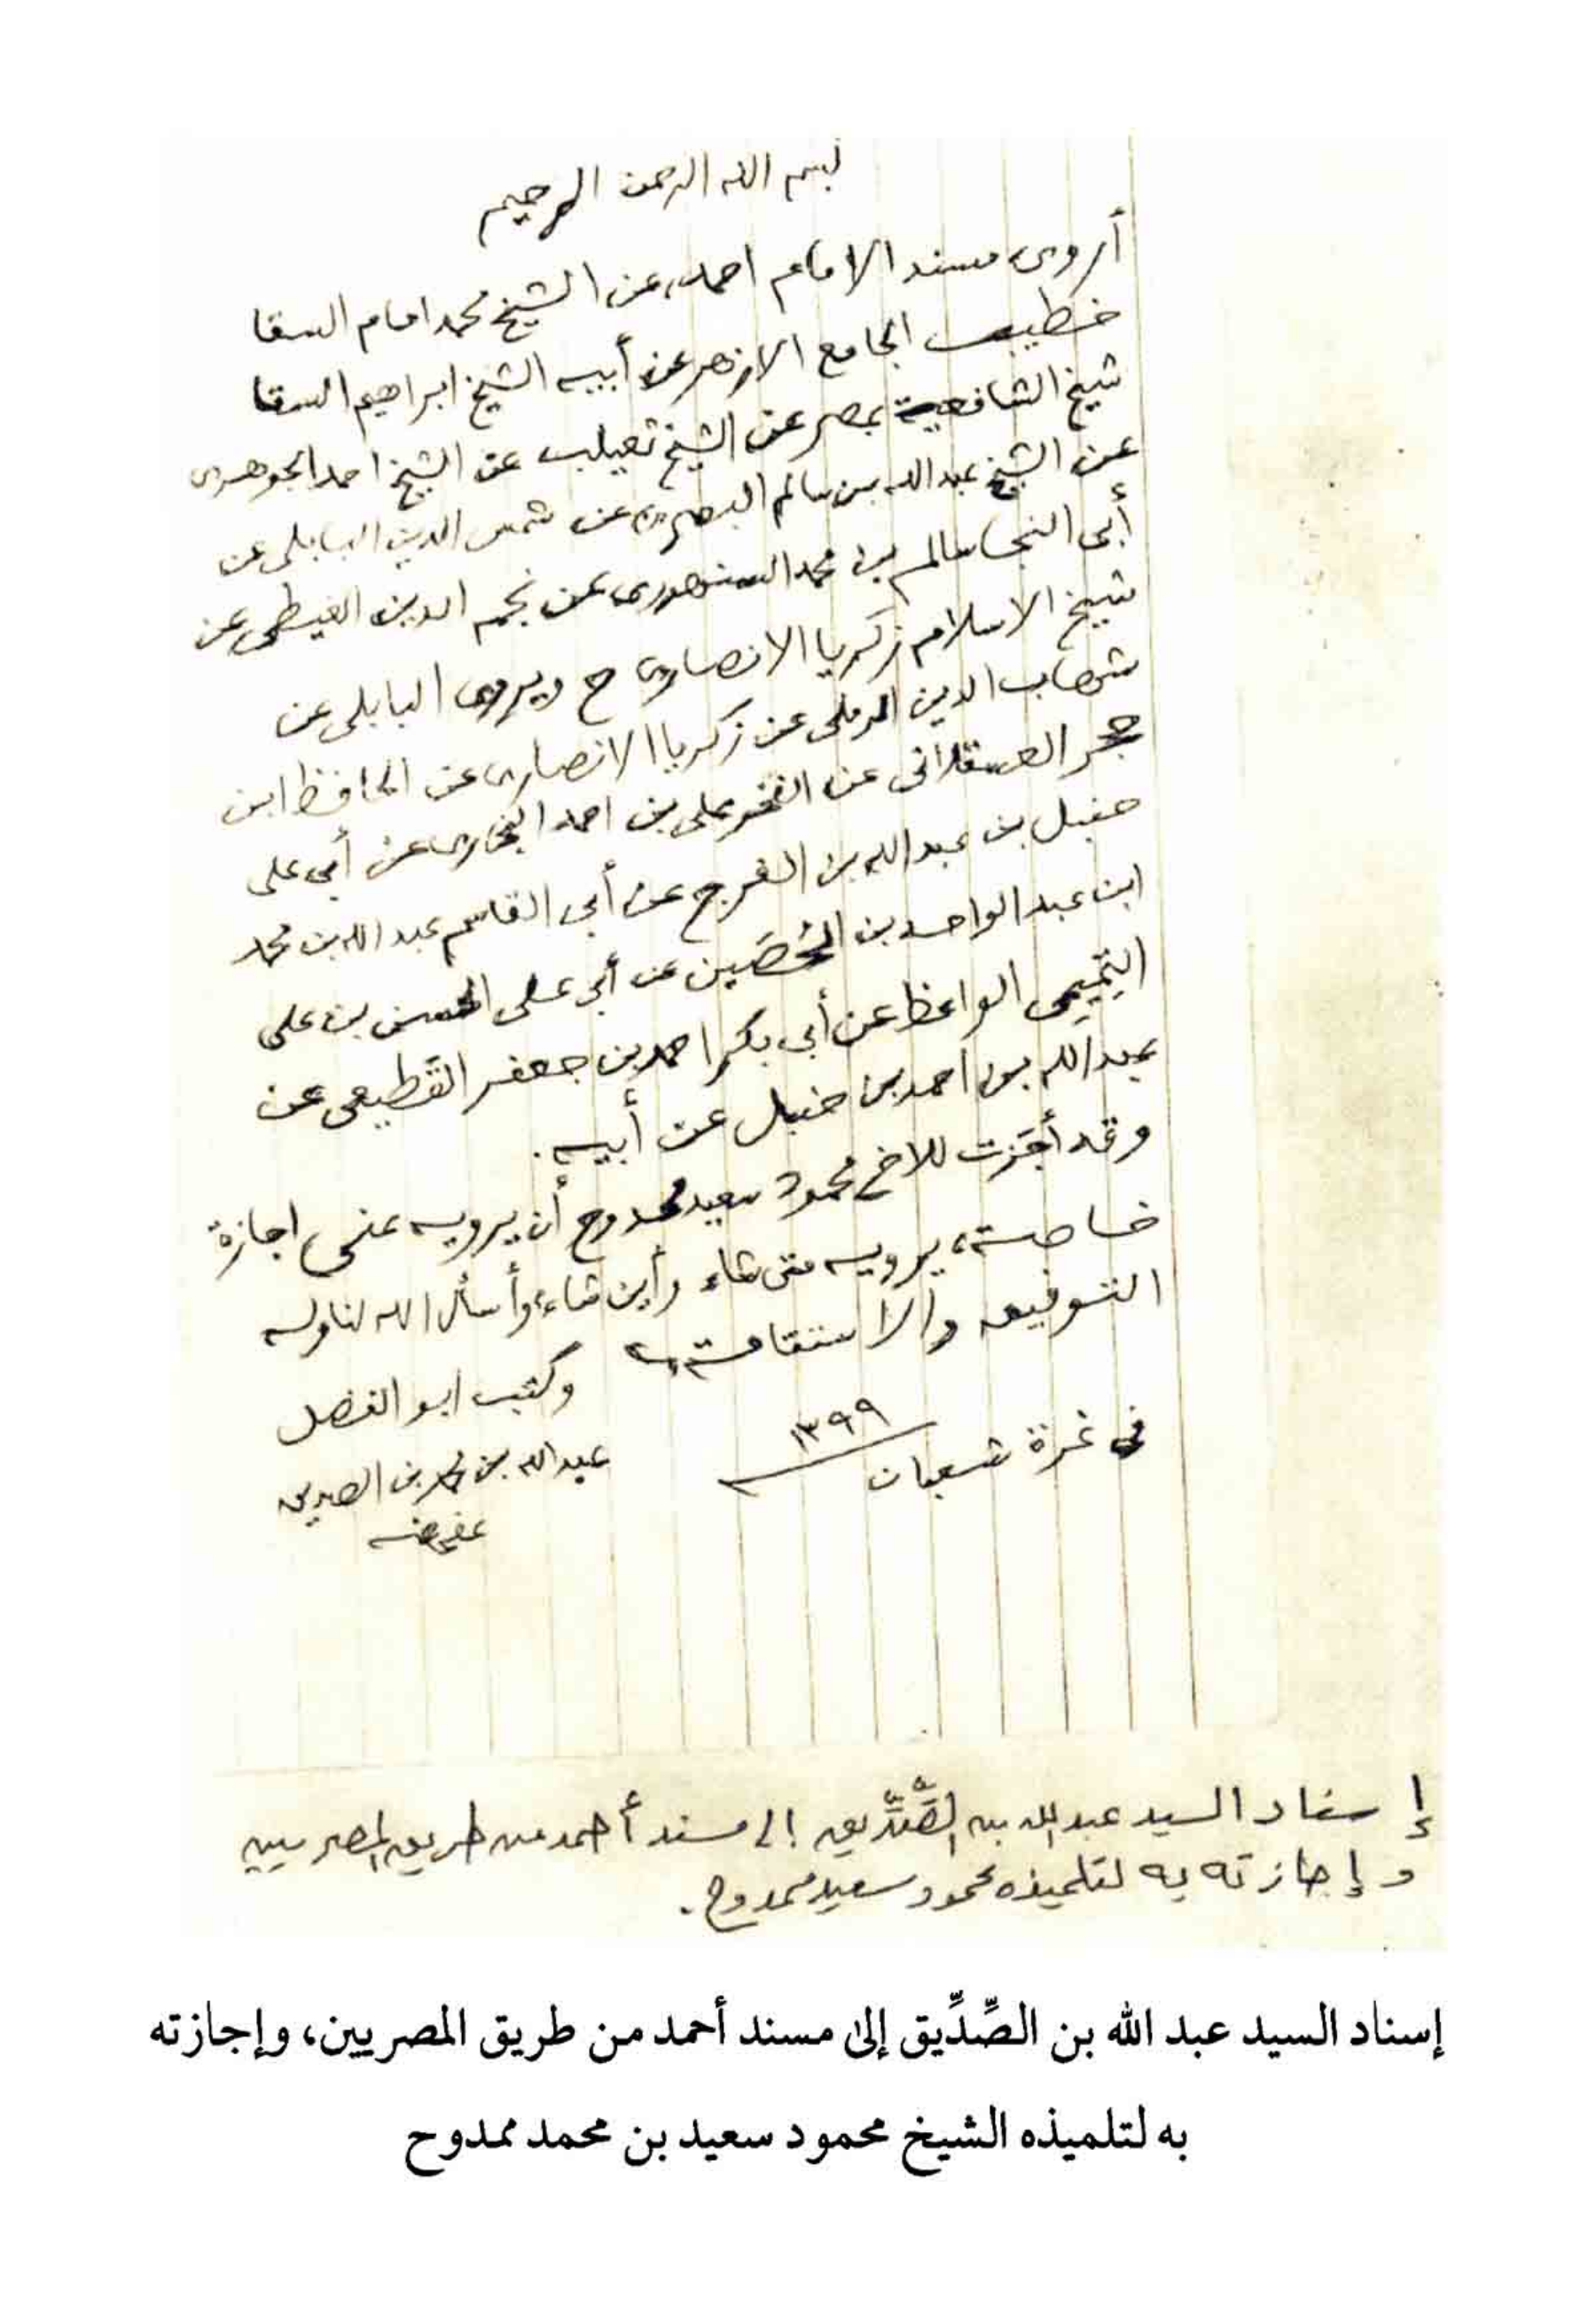 بسم الله الرحمن الرحيم
أروى مسند الامام احمد، عن الشيخ محمد امام السقا
خطيب الجامع الازهر عن أبيه الشيخ ابراهيم السقا
شيخ الشافعية بمصر عن الشيخ ثعيلب عن الشيخ احمد الجوهرى
عن الشيخ عبد الله بن سالم البصرى عن شمس الدين البابلى عن
أبى النجا سالم بن محمد السنهورى عن نجم الدين الغيطى عن
شيخ الاسلام زكريا الانصارى ح ويروى البابلى عن
شهاب الدين الرملى عن زكريا الانصارى عن الحافظ ابن
حجر العسقلانى عن الفخر على بن احمد البخارى عن أبى على
حنبل بن عبد الله بن الفرج عن أبى القاسم عبد الله بن محمد
ابن عبد الواحد بن الحُصَين عن أبى على الحسن بن على
التَّمِيمى الواعظ عن أبى بكر احمد بن جعفر القَطيعى عن
عبد الله بن احمد بن حنبل عن أبيه.
وقد أجَزت للاخ محمود سعيد ممدوح أن يرويه عنى اجازة
خاصة، يرويه متى شاء وأين شاء، وأسأل الله لنا وله
التوفيق والاستقامة،
وكتب ابو الفضل
عبد الله بن محمد بن الصديق
عفى عنه
فى غرة شعبان ١٣٩٩
إسناد السيد عبد الله بن الصِّدِّيق إلى مسند أحمد من طريق المصريين
و إجازته به لتلميذه محمود سعيد ممدوح.
إسناد السيد عبد الله بن الصِّدِّيق إلىٰ مسند أحمد من طريق المصريين، وإجازته
به لتلميذه الشيخ محمود سعيد بن محمد ممدوح